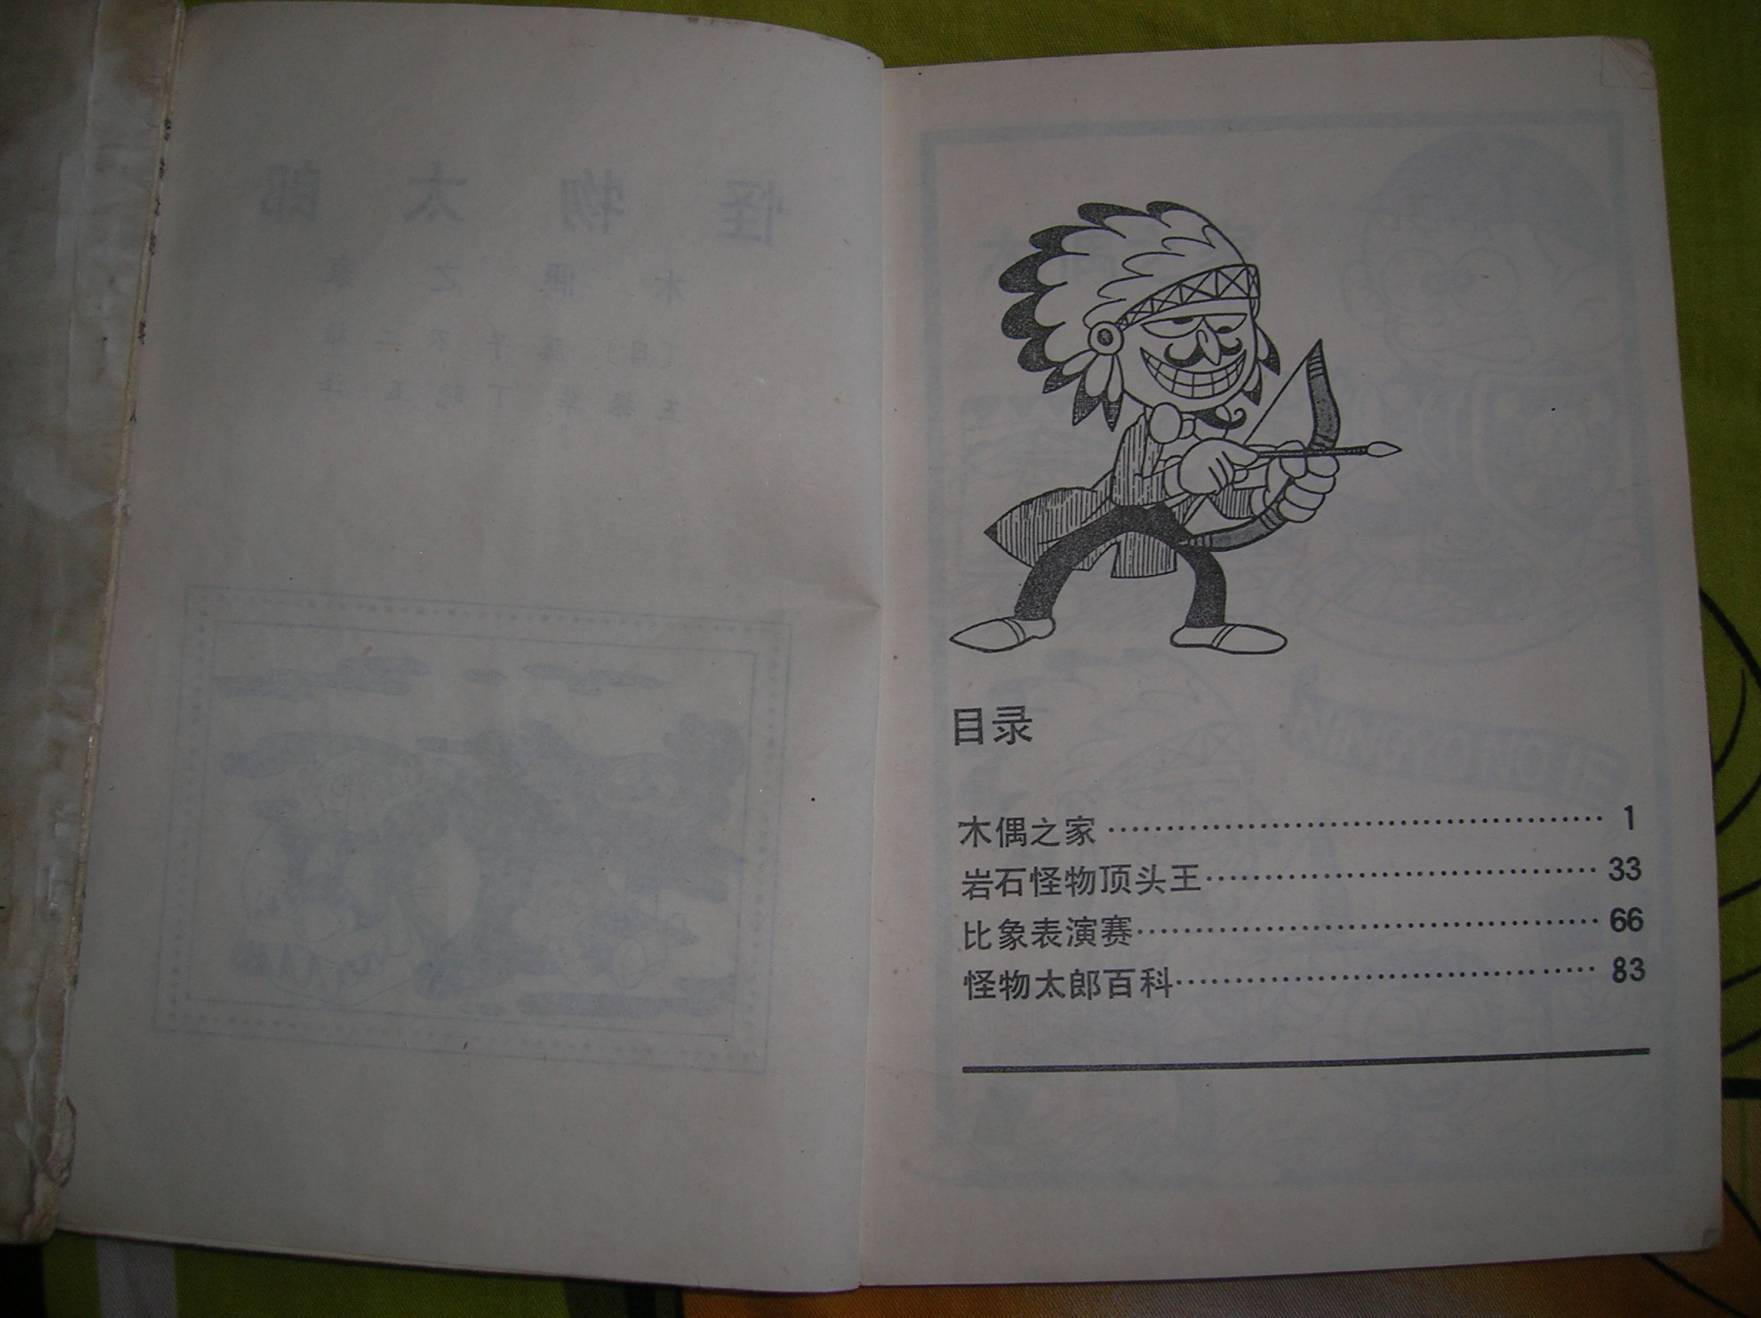 怪物太郎
木偶之家
目录
木偶之家……………………………………1
岩石怪物顶头王……………………………33
比象表演赛…………………………………66
怪物太郎百科………………………………83